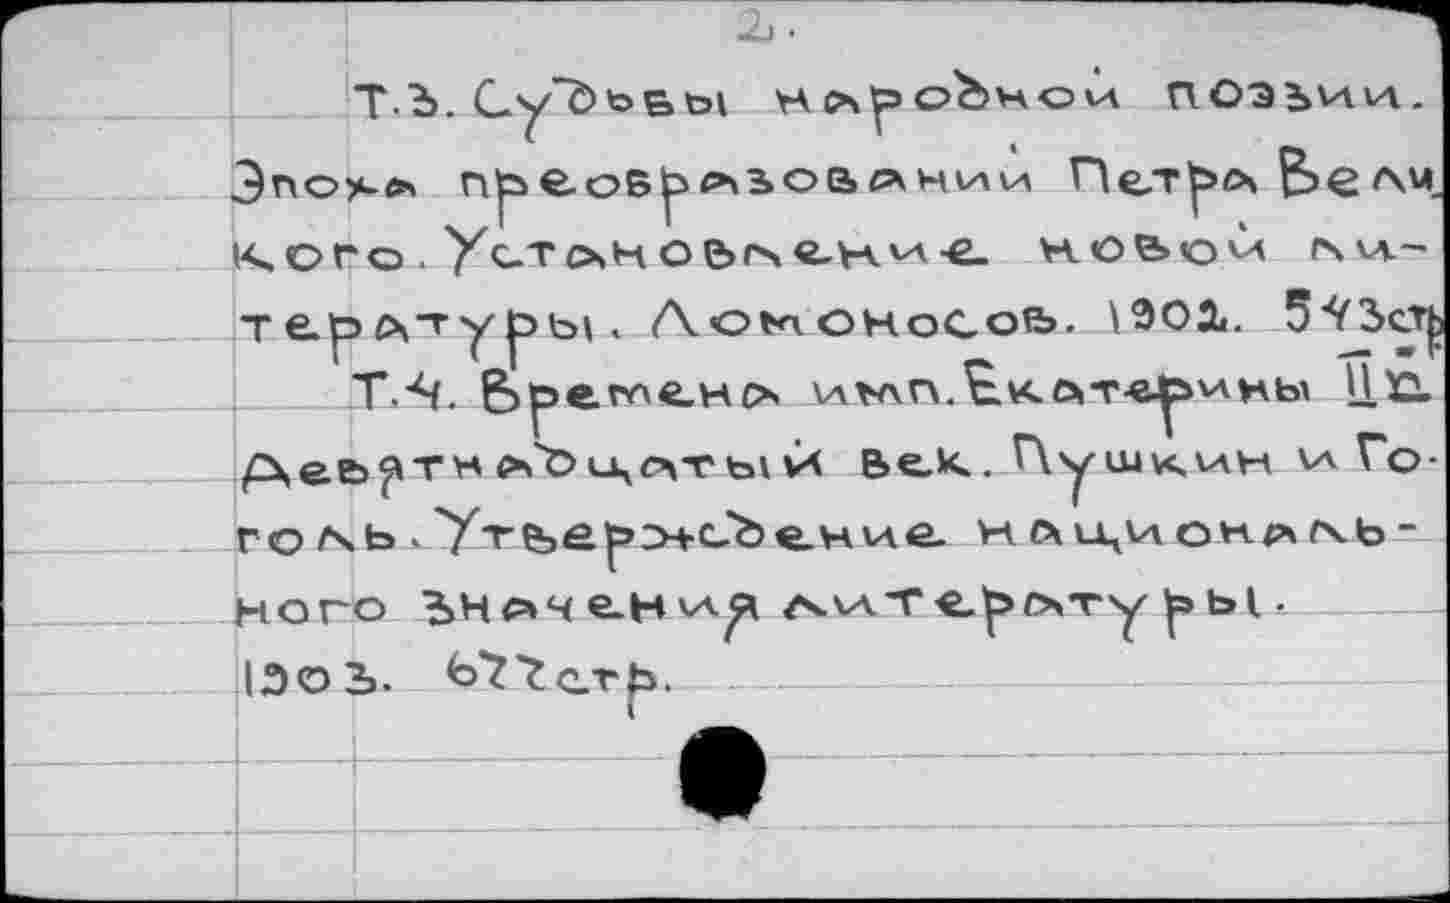 2.
Т.3. Судьбы народной поэзии.
Эпоха преобразований Петра Вели
кого. Установление новой ли-
тературы. Ломоносов. 1902. 543стр
Т.4. Времена имп. Екатерины II й.
Девятнадцатый век. Пушкин и Го-
голь. Утверждение националь-
ного значения литературы.
1903. 677стр.